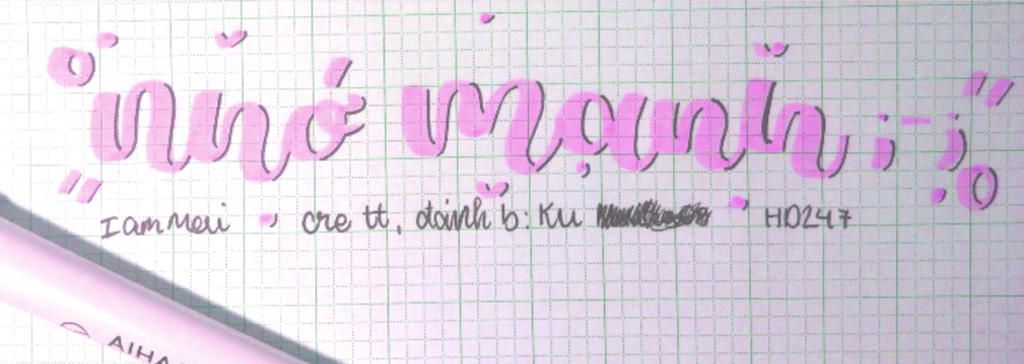 nhớ mạnh ;-;
Iammeii , cre tt, dành b: Ku , HD247
AIHA